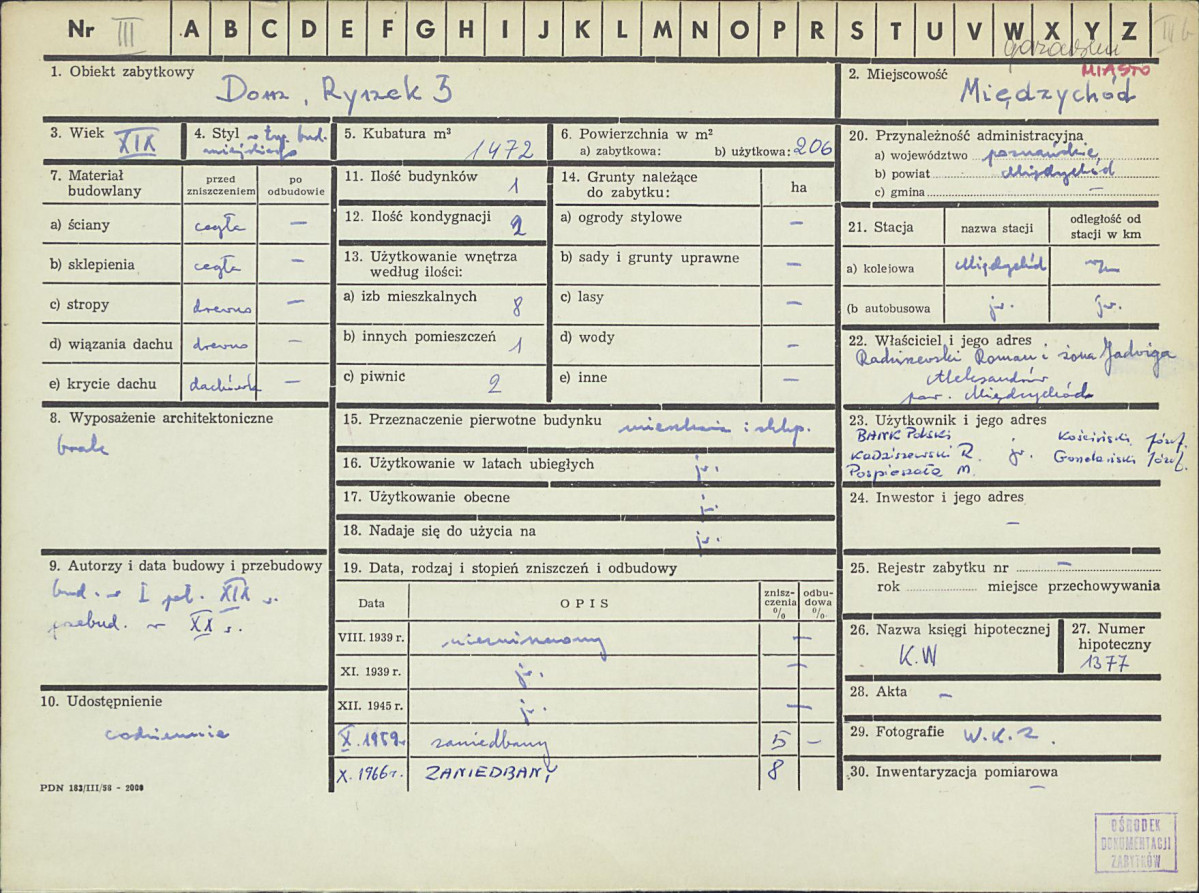 Nr III A B C D E F G H I J K L M N O P R S T U V W X Y Z IVb
MIASTO
1. Obiekt zabytkowy
Dom, Rynek 3
2. Miejscowość
Międzychód
3. Wiek XIX
4. Styl w typ. bud.
miejskiego
5. Kubatura m³
1472
6. Powierzchnia w m²
a) zabytkowa: b) użytkowa: 206
7. Materiał budowlany
przed zniszczeniem
po odbudowie
a) ściany cegła —
b) sklepienia cegła —
c) stropy drewno —
d) wiązania dachu drewno —
e) krycie dachu dachówka —
8. Wyposażenie architektoniczne
brak
9. Autorzy i data budowy i przebudowy
bud. w I poł. XIX w.
przebud. w XX w.
10. Udostępnienie
codziennie
PDN 183/III/58 - 2000
11. Ilość budynków 1
12. Ilość kondygnacji 2
13. Użytkowanie wnętrza
według ilości:
a) izb mieszkalnych 8
b) innych pomieszczeń 1
c) piwnic 2
14. Grunty należące
do zabytku:
ha
a) ogrody stylowe —
b) sady i grunty uprawne —
c) lasy —
d) wody —
e) inne —
15. Przeznaczenie pierwotne budynku mieszkanie i sklep.
16. Użytkowanie w latach ubiegłych jw.
17. Użytkowanie obecne jw.
18. Nadaje się do użycia na jw.
19. Data, rodzaj i stopień zniszczeń i odbudowy
Data OPIS zniszczenia % odbudowa %
VIII. 1939 r. niezniszczony —
XI. 1939 r. jw. —
XII. 1945 r. jw. —
X. 1959 r. zaniedbany 5 —
X. 1966 r. ZANIEDBANY 8
20. Przynależność administracyjna
a) województwo poznańskie
b) powiat Międzychód
c) gmina —
21. Stacja
nazwa stacji
odległość od stacji w km
a) kolejowa Międzychód
(b autobusowa jw. jw.
22. Właściciel i jego adres
Radziszewski Roman i żona Jadwiga
Aleksandrów
pow. Międzychód
23. Użytkownik i jego adres
BANK Polski, Kościński Józef.
Radziszewski R. jw. Józef.
M.
24. Inwestor i jego adres
—
25. Rejestr zabytku nr —
rok miejsce przechowywania
26. Nazwa księgi hipotecznej
K.W
27. Numer hipoteczny
1377
28. Akta —
29. Fotografie W.K.Z.
30. Inwentaryzacja pomiarowa
—
OŚRODEK
DOKUMENTACJI
ZABYTKÓW